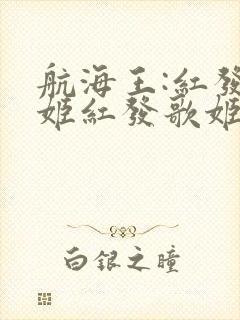 航海王:紅發
姬紅發歌姬
白銀之瞳